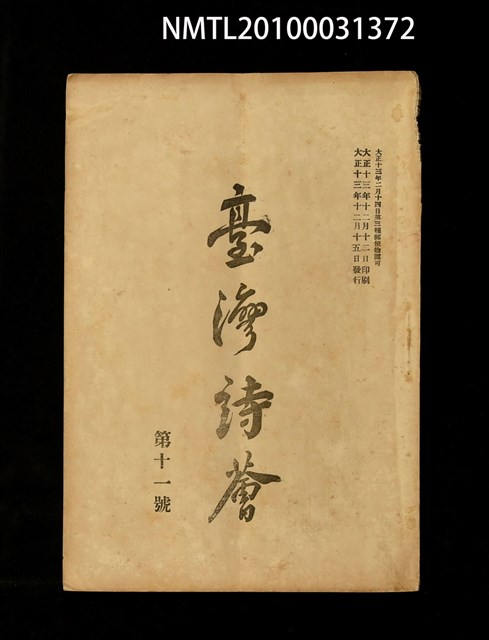 NMTL20100031372
大正十三年二月十四日第三種郵便物認可
大正十三年十二月十二日印刷
大正十三年十二月十五日發行
臺灣詩薈
第十一號